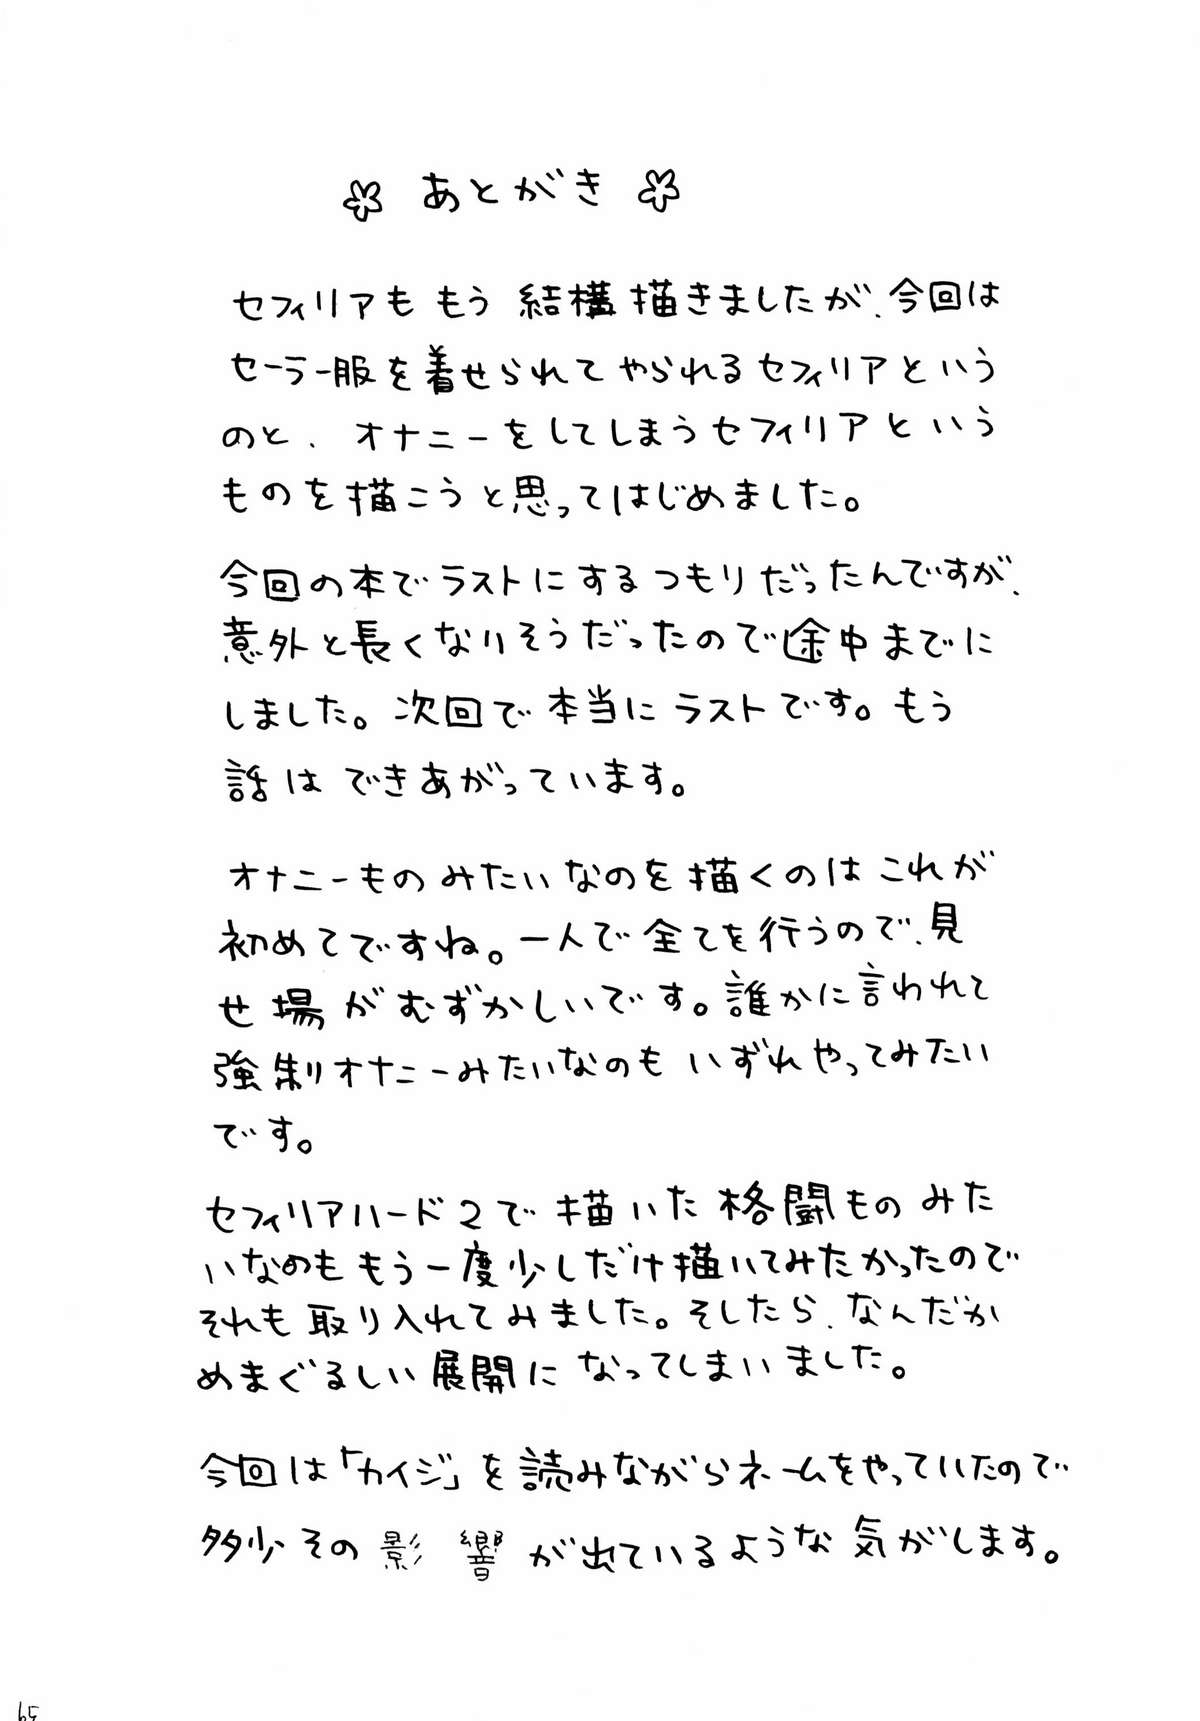 あとがき
セフィリアももう結構描きましたが、今回は
セーラー服を着せられてやられるセフィリアという
のと、オナニーをしてしまうセフィリアという
ものを描こうと思ってはじめました。
今回の本でラストにするつもりだったんですが、
意外と長くなりそうだったので途中までに
しました。次回で本当にラストです。もう
話はできあがっています。
オナニーものみたいなのを描くのはこれが
初めてですね。一人で全てを行うので、見
せ場がむずかしいです。誰かに言われて
強制オナニーみたいなのもいずれやってみたい
です。
セフィリアハード2で描いた格闘ものみた
いなのももう一度少しだけ描いてみたかったので
それも取り入れてみました。そしたら、なんだか
めまぐるしい展開になってしまいました。
今回は「カイジ」を読みながらネームをやっていたので
多少その影響が出ているような気がします。
65